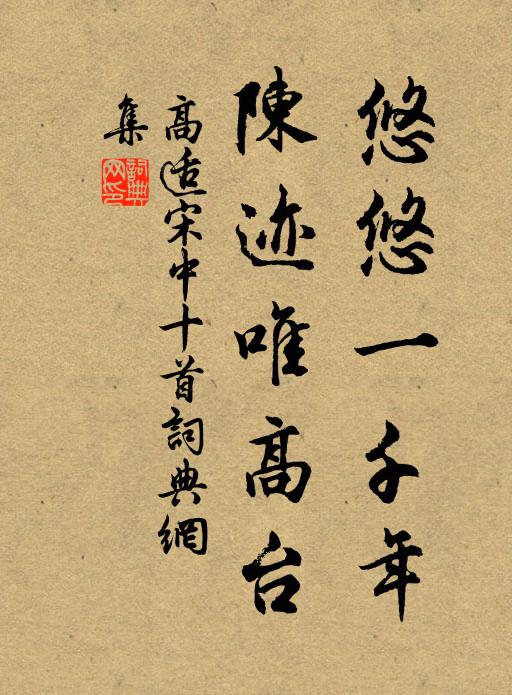 悠悠一千年
陳迹唯高台
高适宋中十首詞典網
集
詞典
网印